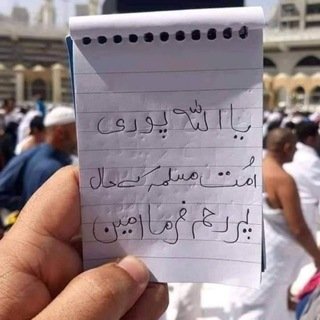 یا اللہ پوری
امُت مسلمہ کے حال
پر رحم فرما امین